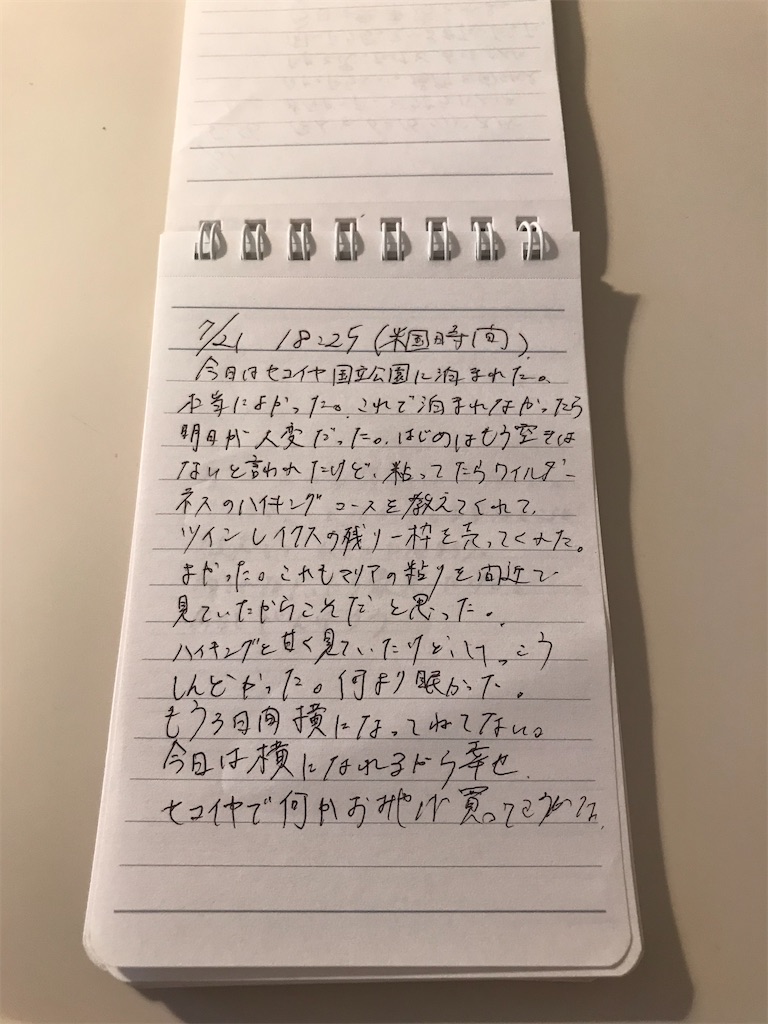 7/21 18:25 (米国時間)
今日はセコイヤ国立公園に泊まれた。
本当によかった。これで泊まれなかったら
明日が大変だった。はじめはもう空きは
ないと言われたけど、粘ってたらワイルダー
ネスのハイキングコースを教えてくれて、
ツインレイクスの残り一枠を売ってくれた。
よかった。これもマリアの粘りを間近で
見ていたからこそだと思った。
ハイキングと甘く見ていたけど、けっこう
しんどかった。何より眠かった。
もう3日間横になってねてない。
今日は横になれるから幸せ.
セコイヤで何かおみやげ買ってこうかな.